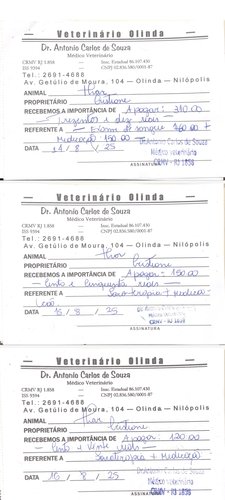 Veterinário Olinda
Dr. Antonio Carlos de Souza
Médico Veterinário
CRMV RJ 1.858 — Insc. Estadual 86.107.430
ISS 5594 — CNPJ 02.836.580/0001-87
Tel.: 2691-4688
Av. Getúlio de Moura, 104 — Olinda — Nilópolis
ANIMAL Thor
PROPRIETÁRIO Cristiane
RECEBEMOS A IMPORTÂNCIA DE A pagar: 310.00
— trezentos e dez reais —
REFERENTE A — Exame de sangue 160.00 +
Medicação 150.00 — Dr. Antonio Carlos de Souza
Médico Veterinário
DATA 14 / 8 / 25 CRMV - RJ 1858
ASSINATURA
Veterinário Olinda
Dr. Antonio Carlos de Souza
Médico Veterinário
CRMV RJ 1.858 — Insc. Estadual 86.107.430
ISS 5594 — CNPJ 02.836.580/0001-87
Tel.: 2691-4688
Av. Getúlio de Moura, 104 — Olinda — Nilópolis
ANIMAL Thor
PROPRIETÁRIO Cristiane
RECEBEMOS A IMPORTÂNCIA DE A pagar = 150.00
— Cento e cinquenta reais —
REFERENTE A Soro terápia + Medica-
ção —
DATA 15 / 8 / 25 CRMV - RJ 1858
ASSINATURA
Veterinário Olinda
Dr. Antonio Carlos de Souza
Médico Veterinário
CRMV RJ 1.858 — Insc. Estadual 86.107.430
ISS 5594 — CNPJ 02.836.580/0001-87
Tel.: 2691-4688
Av. Getúlio de Moura, 104 — Olinda — Nilópolis
ANIMAL Thor
PROPRIETÁRIO Cristiane
RECEBEMOS A IMPORTÂNCIA DE A pagar 120.00
— Cento e vinte reais —
REFERENTE A Soroterápia + Medicação
Dr. Antonio Carlos de Souza
Médico Veterinário
DATA 16 / 8 / 25 CRMV - RJ 1858
ASSINATURA